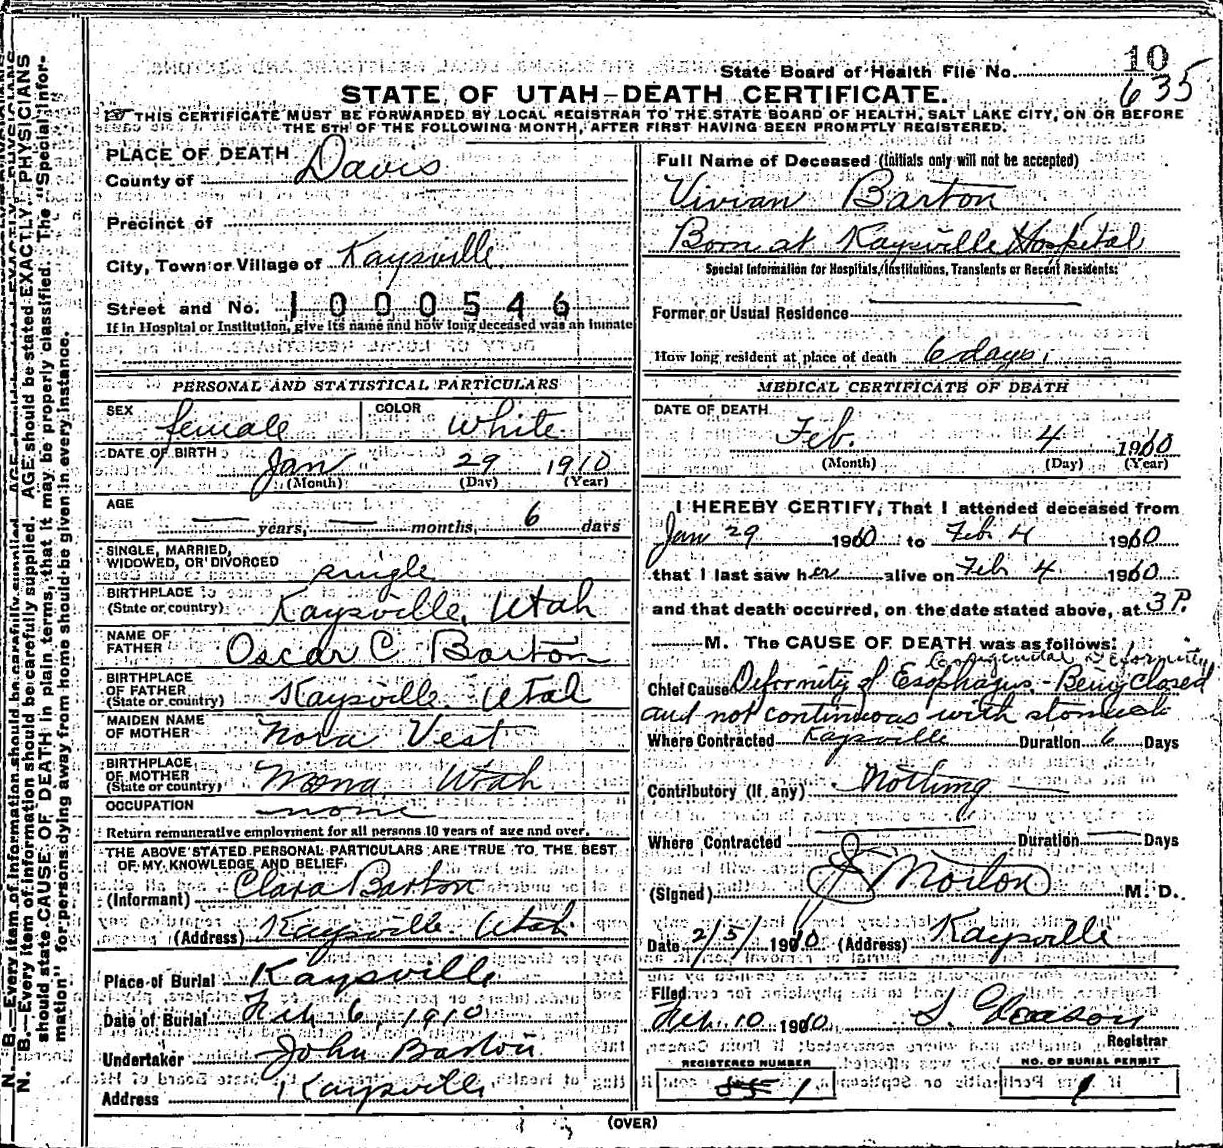 10
State Board of Health File No. 635
STATE OF UTAH-DEATH CERTIFICATE.
THIS CERTIFICATE MUST BE FORWARDED BY LOCAL REGISTRAR TO THE STATE BOARD OF HEALTH, SALT LAKE CITY, ON OR BEFORE
THE 5TH OF THE FOLLOWING MONTH, AFTER FIRST HAVING BEEN PROMPTLY REGISTERED.
PLACE OF DEATH
County of Davis
Precinct of
City, Town or Village of Kaysville
Street and No. 1000546
If in Hospital or Institution, give its name and how long deceased was an inmate
PERSONAL AND STATISTICAL PARTICULARS
SEX female COLOR White
DATE OF BIRTH Jan 29 1910
(Month) (Day) (Year)
AGE
— years, — months, 6 days
SINGLE, MARRIED,
WIDOWED, OR DIVORCED single
BIRTHPLACE
(State or country) Kaysville, Utah
NAME OF
FATHER Oscar C Barton
BIRTHPLACE
OF FATHER
(State or country) Kaysville Utah
MAIDEN NAME
OF MOTHER Nora Vest
BIRTHPLACE
OF MOTHER
(State or country) Utah
OCCUPATION none
Return remunerative employment for all persons 10 years of age and over.
THE ABOVE STATED PERSONAL PARTICULARS ARE TRUE TO THE BEST
OF MY KNOWLEDGE AND BELIEF.
(Informant) Clara Barton
(Address) Kaysville Utah
Place of Burial Kaysville
Date of Burial Feb. 6, 1910
Undertaker John Barton
Address Kaysville
Full Name of Deceased (Initials only will not be accepted)
Vivian Barton
Born at Kaysville Hospital
Special Information for Hospitals, Institutions, Transients or Recent Residents:
Former or Usual Residence
How long resident at place of death 6 days.
MEDICAL CERTIFICATE OF DEATH
DATE OF DEATH
Feb. 4 1910
(Month) (Day) (Year)
I HEREBY CERTIFY, That I attended deceased from
Jan 29 1910 to Feb 4 1910
that I last saw her alive on Feb 4 1910
and that death occurred, on the date stated above, at 3 P.
M. The CAUSE OF DEATH was as follows:
Congenital Deformity
Chief Cause Deformity of Esophagus - Being closed
and not continuous with stomach
Where Contracted Kaysville Duration 6 Days
Contributory (If any) Nothing
Where Contracted Duration Days
(Signed) Morton M. D.
Date 2/5/ 1910 (Address) Kaysville
Filed
Feb. 10 1910 S. Gleason
Registrar
REGISTERED NUMBER NO. OF BURIAL PERMIT
1 1
(OVER)
N. B.—Every item of information should be carefully supplied. AGE should be stated EXACTLY. PHYSICIANS
should state CAUSE OF DEATH in plain terms, that it may be properly classified. The "Special infor-
mation" for persons dying away from home should be given in every instance.